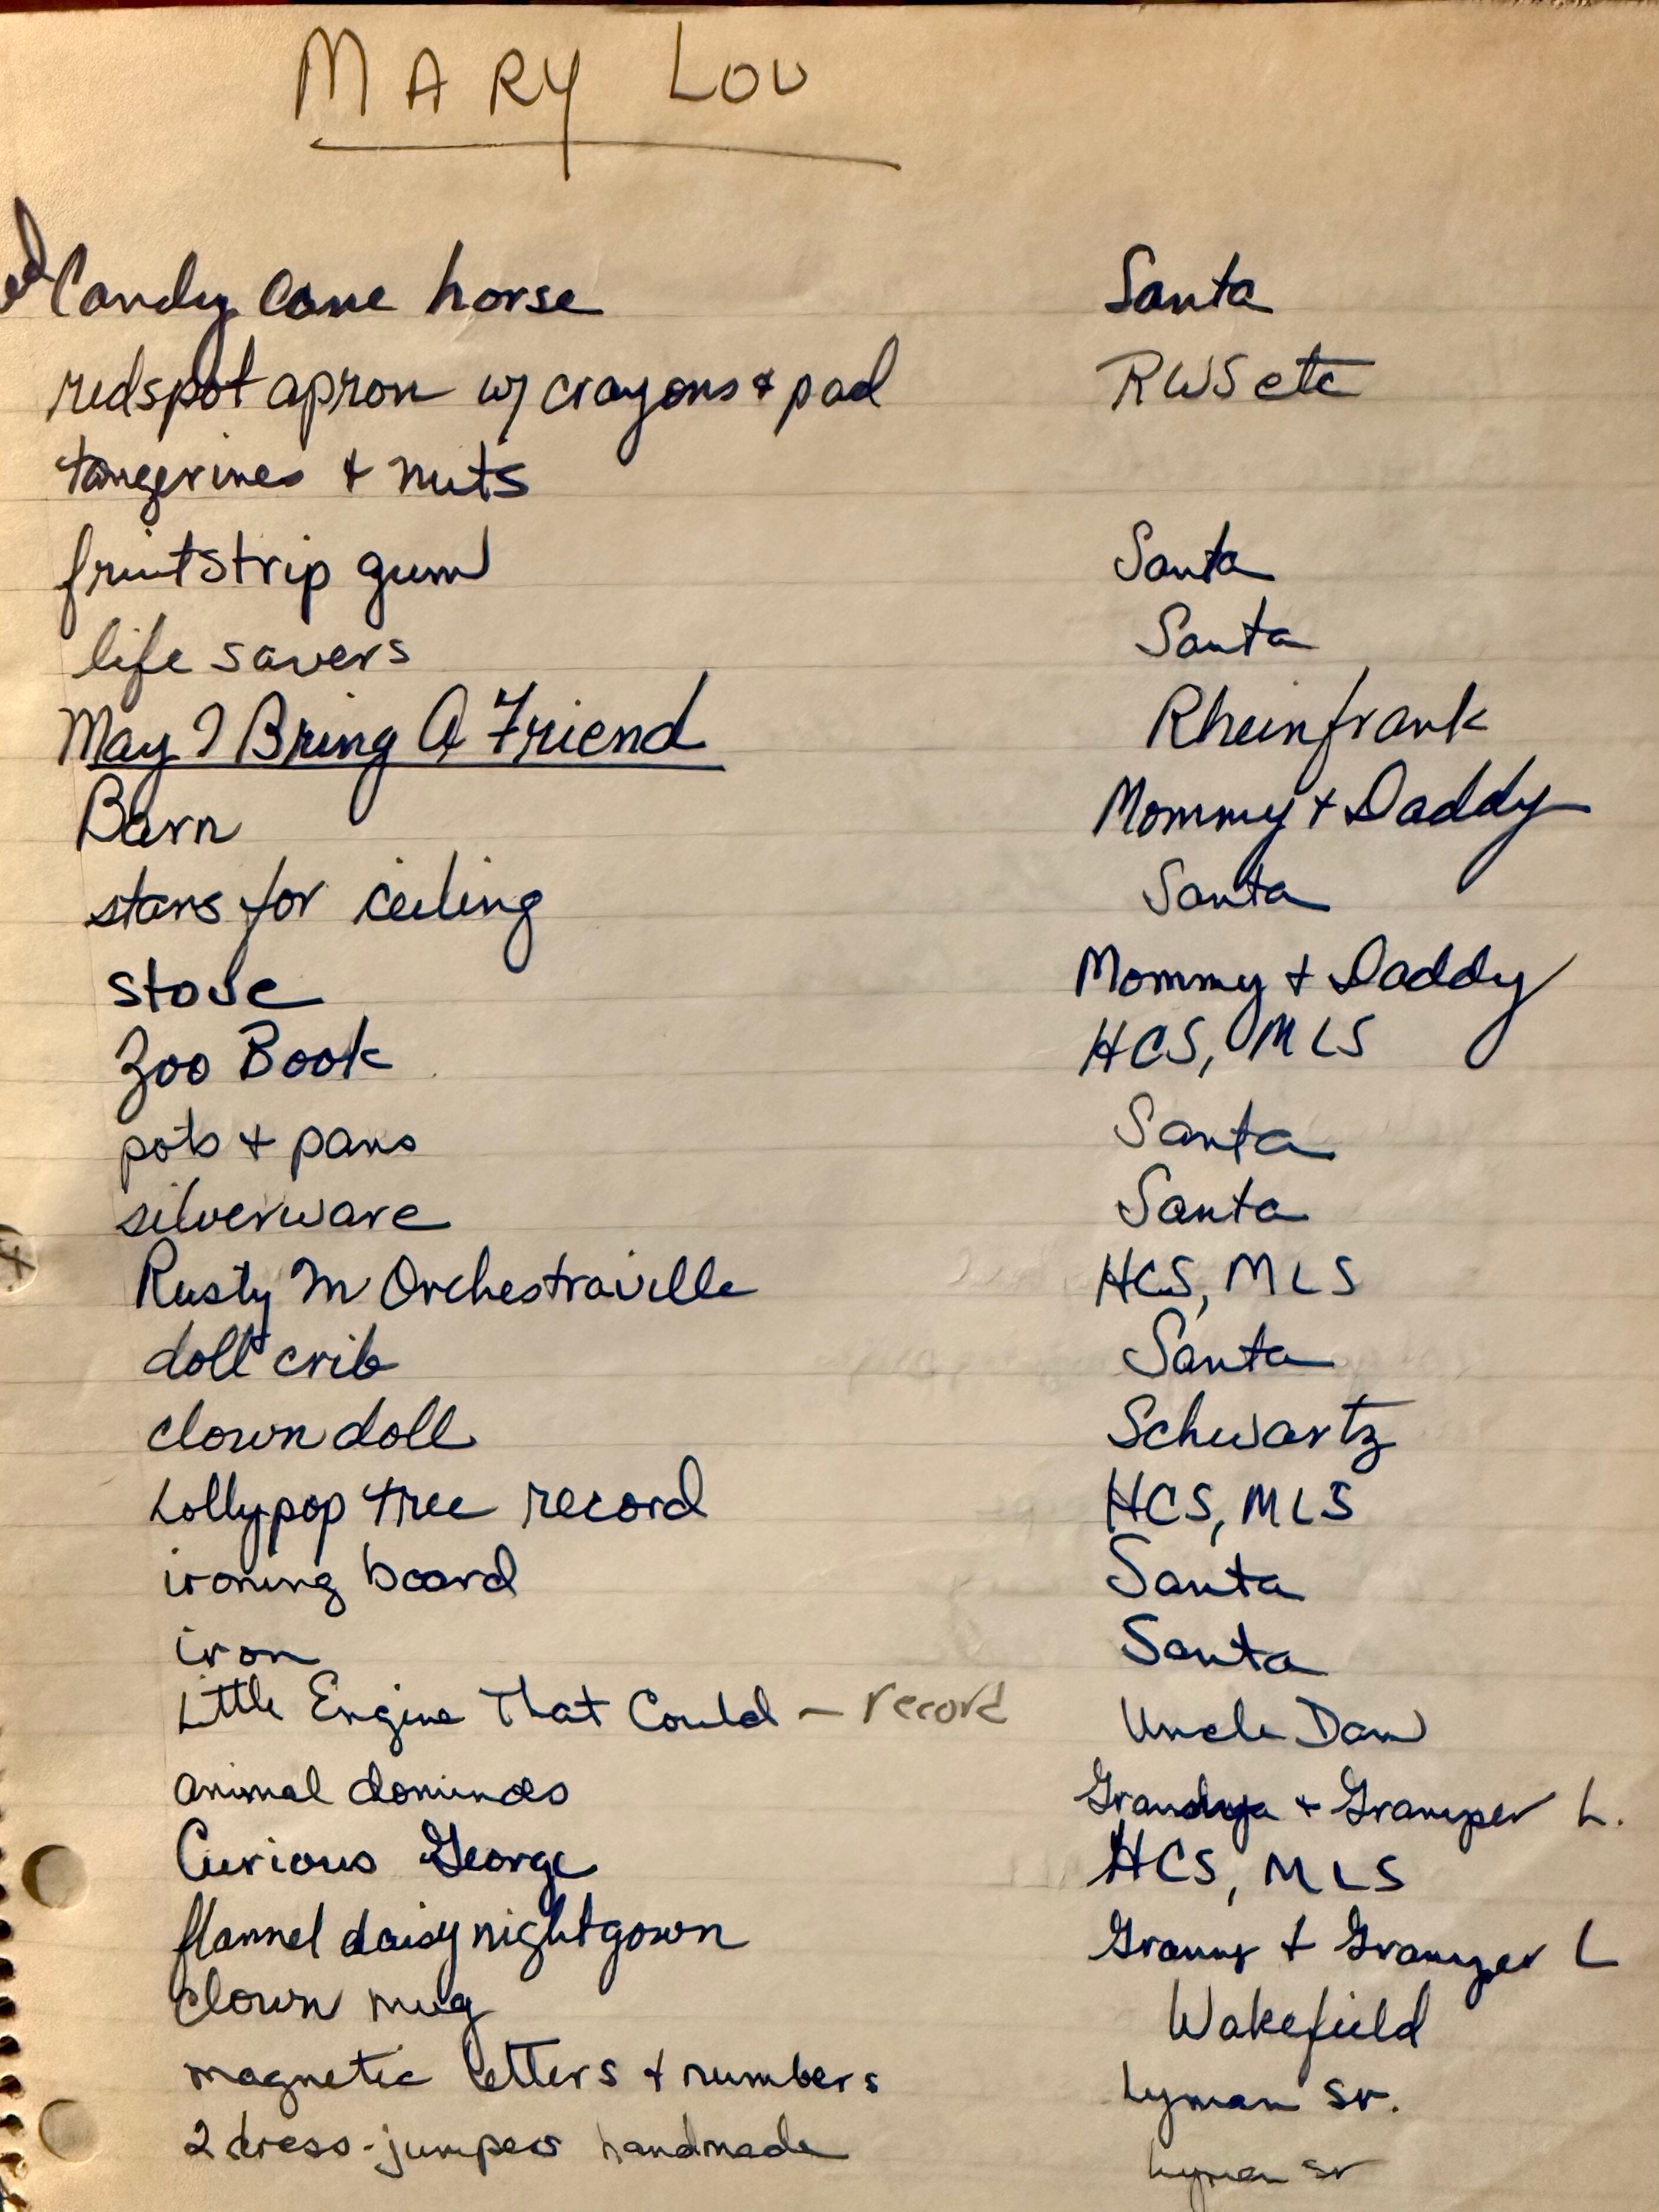 MARY LOU
Candy Cane horse Santa
redspot apron w/ crayons + pad RWS etc
tangerines + nuts
fruitstrip gum Santa
life savers Santa
May I Bring A Friend Rheinfrank
Barn Mommy + Daddy
stars for ceiling Santa
stove Mommy + Daddy
Zoo Book HCS, MLS
pots + pans Santa
silverware Santa
Rusty In Orchestraville HCS, MLS
doll crib Santa
clown doll Schwartz
Lollypop tree record HCS, MLS
ironing board Santa
iron Santa
Little Engine That Could – record Uncle Dan
animal dominoes + Gramper L.
Curious George HCS, MLS
flannel daisy nightgown Granny + Gramper L
clown mug Wakefield
magnetic letters + numbers Lyman Sr.
2 dress-jumpers handmade Lyman Sr